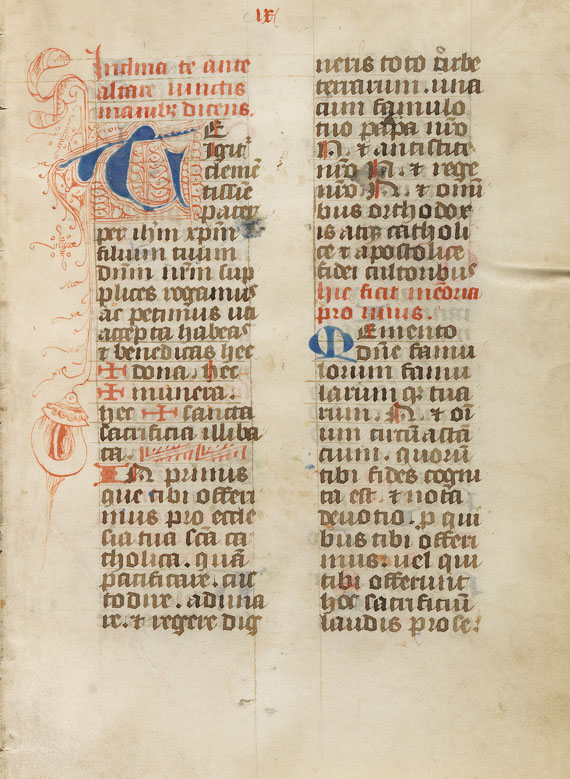 ix
Inclina te ante
altare iunctis
manibꝫ dicens.
TE
igitᷣ
clemē
tissīe
pater
per ihm xpm̄
filium tuum
dnm̄ nrm̄ sup
plices rogamus
ac petimus uti
accepta habeas
⁊ benedicas hec
✠ dona. hec
✠ munera.
hec ✠ sancta
sacrificia illiba
ta.
IN primis
que tibi offeri
mus pro eccle
sia tua scā ca
tholica. quā
pacificare. cus
todire. aduna
re. ⁊ regere dig
neris toto orbe
terrarum. una
cum famulo
tuo papa nr̄o
N. ⁊ antistite
nr̄o N. ⁊ rege
nr̄o N. ⁊ omī
bus orthodox
is atqꝫ catholi
ce ⁊ apostolice
fidei cultoribus
hic ficit mēoria
pro uiuis.
Memento
dn̄e famu
lorum famu
larum qꝫ tua
rum. N. ⁊ oī
um circūastā
cium. quorū
tibi fides cogni
ta est. ⁊ nota
deuotio. ꝓ qui
bus tibi offeri
mus. uel qui
tibi offerunt
hoc sacrificiū
laudis pro se.